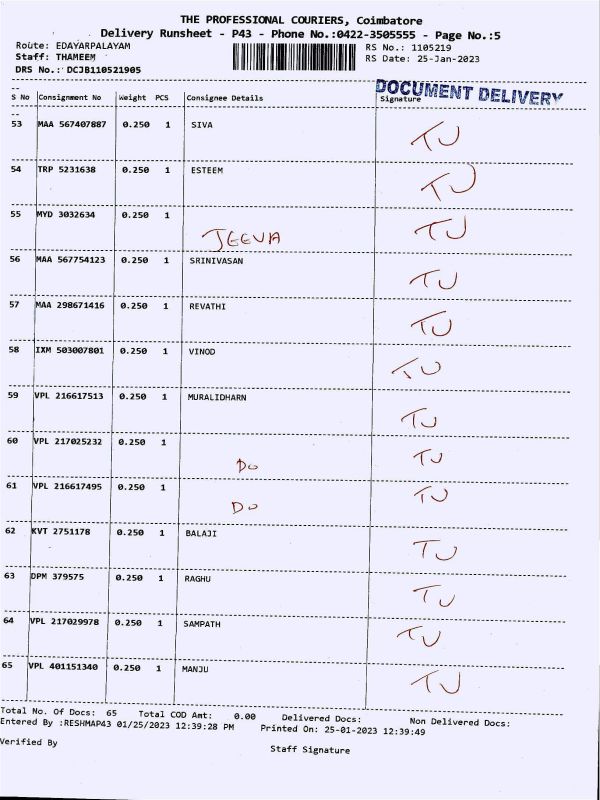 THE PROFESSIONAL COURIERS, Coimbatore
Delivery Runsheet - P43 - Phone No.:0422-3505555 - Page No.:5
Route: EDAYARPALAYAM RS No.: 1105219
Staff: THAMEEM RS Date: 25-Jan-2023
DRS No.: DCJB110521905
DOCUMENT DELIVERY
S No Consignment No Weight PCS Consignee Details Signature
53 MAA 567407887 0.250 1 SIVA TJ
54 TRP 5231638 0.250 1 ESTEEM TJ
55 MYD 3032634 0.250 1 JEEVA TJ
56 MAA 567754123 0.250 1 SRINIVASAN TJ
57 MAA 298671416 0.250 1 REVATHI TJ
58 IXM 503007801 0.250 1 VINOD TJ
59 VPL 216617513 0.250 1 MURALIDHARN TJ
60 VPL 217025232 0.250 1 Do TJ
61 VPL 216617495 0.250 1 Do TJ
62 KVT 2751178 0.250 1 BALAJI TJ
63 DPM 379575 0.250 1 RAGHU TJ
64 VPL 217029978 0.250 1 SAMPATH TJ
65 VPL 401151340 0.250 1 MANJU TJ
Total No. Of Docs: 65 Total COD Amt: 0.00 Delivered Docs: Non Delivered Docs:
Entered By :RESHMAP43 01/25/2023 12:39:28 PM Printed On: 25-01-2023 12:39:49
Verified By Staff Signature